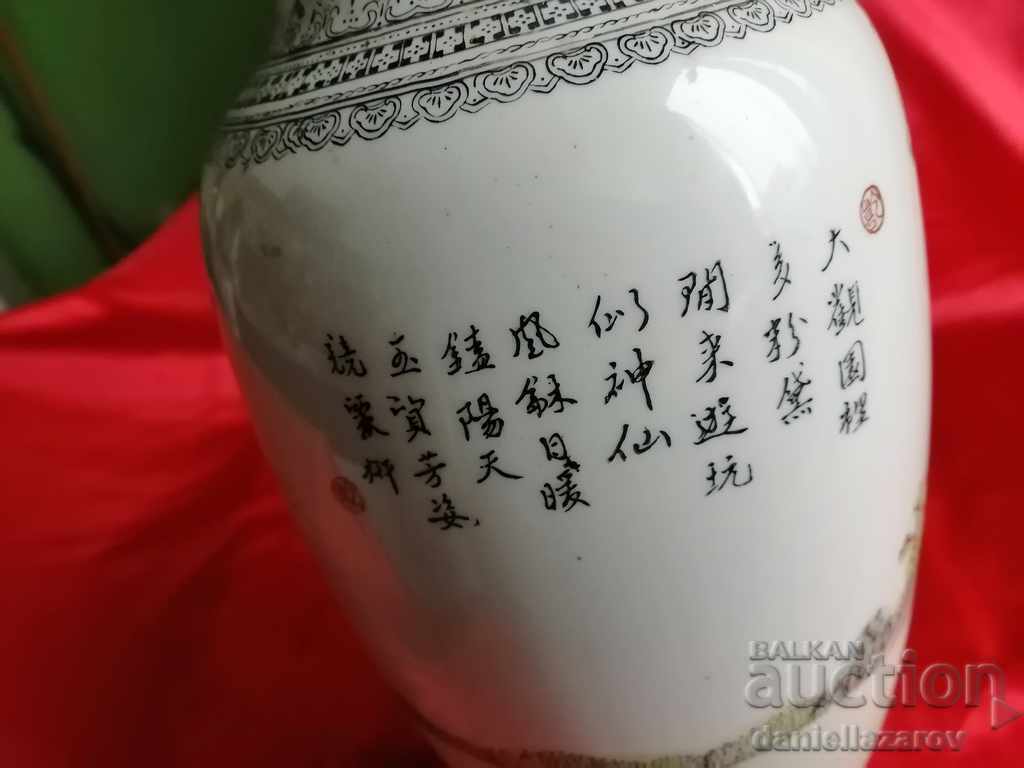 大觀園裡
多粉黛
閒來遊玩
似神仙
風日暖
陽天
芳姿
BALKAN
auction
daniellazarov